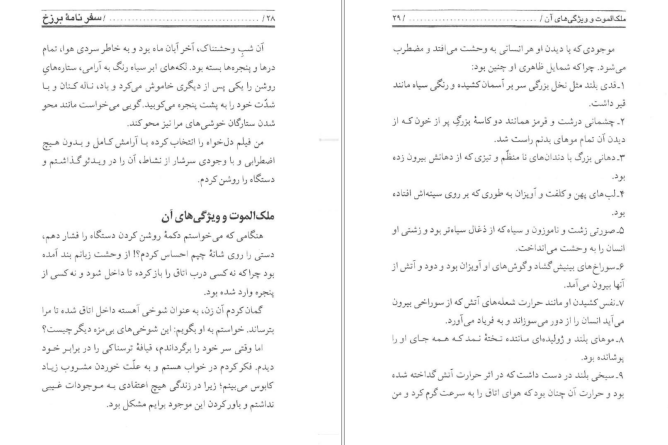 ۲۸ / ........................................ / سفر نامهٔ برزخ
آن شبِ وحشتناک، آخر آبان ماه بود و به خاطر سردی هوا، تمام
درها و پنجره‌ها بسته بود. لکه‌های ابر سیاه رنگ به آرامی، ستاره‌های
روشن را یکی پس از دیگری خاموش می‌کرد و باد، ناله کنان و با
شدّت خود را به پشت پنجره می‌کوبید. گویی می‌خواست مانند محو
شدن ستارگان خوشی‌های مرا نیز محو کند.
من فیلم دل‌خواه را انتخاب کرده با آرامش کامل و بدون هیچ
اضطرابی و با وجودی سرشار از نشاط، آن را در ویدئو گذاشتم و
دستگاه را روشن کردم.
ملک‌الموت و ویژگی‌های آن
هنگامی که می‌خواستم دکمهٔ روشن کردن دستگاه را فشار دهم،
دستی را روی شانهٔ چپم احساس کردم؟! از وحشت زبانم بند آمده
بود چرا که نه کسی درب اتاق را باز کرده تا داخل شود و نه کسی از
پنجره وارد شده بود.
گمان کردم آن زن، به عنوان شوخی آهسته داخل اتاق شده تا مرا
بترساند. خواستم به او بگویم: این شوخی‌های بی‌مزه دیگر چیست؟
اما وقتی سر خود را برگرداندم، قیافهٔ ترسناکی را در برابر خود
دیدم. فکر کردم در خواب هستم و به علّت خوردن مشروب زیاد
کابوس می‌بینم؛ زیرا در زندگی هیچ اعتقادی به موجودات غیبی
نداشتم و باور کردن این موجود برایم مشکل بود.
ملک‌الموت و ویژگی‌های آن / ........................................ / ۲۹
موجودی که با دیدن او هر انسانی به وحشت می‌افتد و مضطرب
می‌شود. چرا که شمایل ظاهری او چنین بود:
۱ـ قدی بلند مثل نخل بزرگی سر بر آسمان کشیده و رنگی سیاه مانند
قیر داشت.
۲ـ چشمانی درشت و قرمز همانند دو کاسهٔ بزرگِ پر از خون که از
دیدن آن تمام موهای بدنم راست شد.
۳ـ دهانی بزرگ با دندان‌های نا منظّم و تیزی که از دهانش بیرون زده
بود.
۴ـ لب‌های پهن و کلفت و آویزان به طوری که بر روی سینه‌اش افتاده
بود.
۵ـ صورتی زشت و ناموزون و سیاه که از ذغال سیاه‌تر بود و زشتی او
انسان را به وحشت می‌انداخت.
۶ـ سوراخ‌های بینیش گشاد و گوش‌های او آویزان بود و دود و آتش از
آنها بیرون می‌آمد.
۷ـ نفس کشیدن او مانند حرارت شعله‌های آتش که از سوراخی بیرون
می‌آید انسان را از دور می‌سوزاند و به فریاد می‌آورد.
۸ـ موهای بلند و ژولیده‌ای مانند تختهٔ نمد که همه جای او را
پوشانده بود.
۹ـ سیخی بلند در دست داشت که در اثر حرارت آتش گداخته شده
بود و حرارت آن چنان بود که هوای اتاق را به سرعت گرم کرد و من